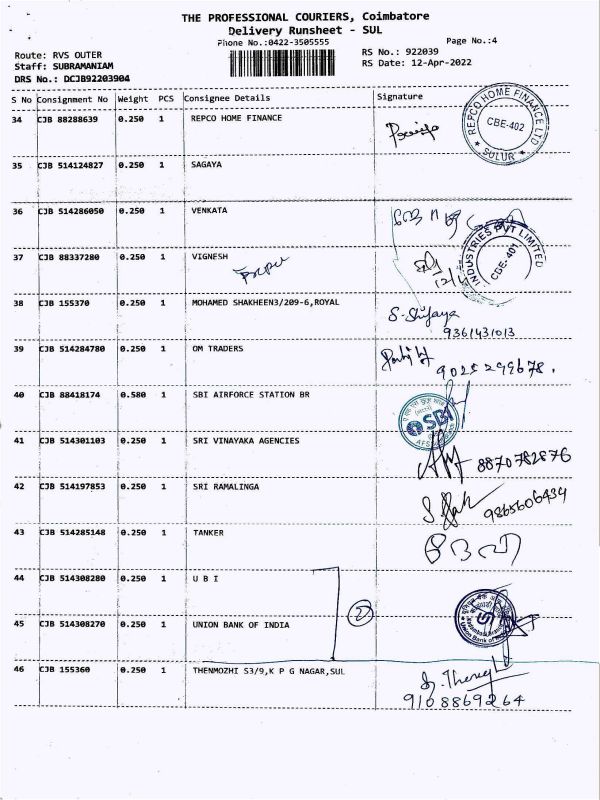 THE PROFESSIONAL COURIERS, Coimbatore
Delivery Runsheet - SUL
Phone No.:0422-3505555
Page No.:4
Route: RVS OUTER
RS No.: 922039
Staff: SUBRAMANIAM
RS Date: 12-Apr-2022
DRS No.: DCJB92203904
S No Consignment No Weight PCS Consignee Details Signature
34 CJB 88288639 0.250 1 REPCO HOME FINANCE
REPCO HOME FINANCE LTD
CBE-402
SULUR
35 CJB 514124827 0.250 1 SAGAYA
36 CJB 514286050 0.250 1 VENKATA
37 CJB 88337280 0.250 1 VIGNESH
INDUSTRIES PVT LIMITED
CBE-401
38 CJB 155370 0.250 1 MOHAMED SHAKHEEN3/209-6,ROYAL
S. Shifaya
9361431013
39 CJB 514284780 0.250 1 OM TRADERS
9025299678.
40 CJB 88418174 0.580 1 SBI AIRFORCE STATION BR
SBI
41 CJB 514301103 0.250 1 SRI VINAYAKA AGENCIES
8870782876
42 CJB 514197853 0.250 1 SRI RAMALINGA
9865606434
43 CJB 514285148 0.250 1 TANKER
44 CJB 514308280 0.250 1 U B I
2
45 CJB 514308270 0.250 1 UNION BANK OF INDIA
Union Bank of India
46 CJB 155360 0.250 1 THENMOZHI S3/9,K P G NAGAR,SUL
9108869264